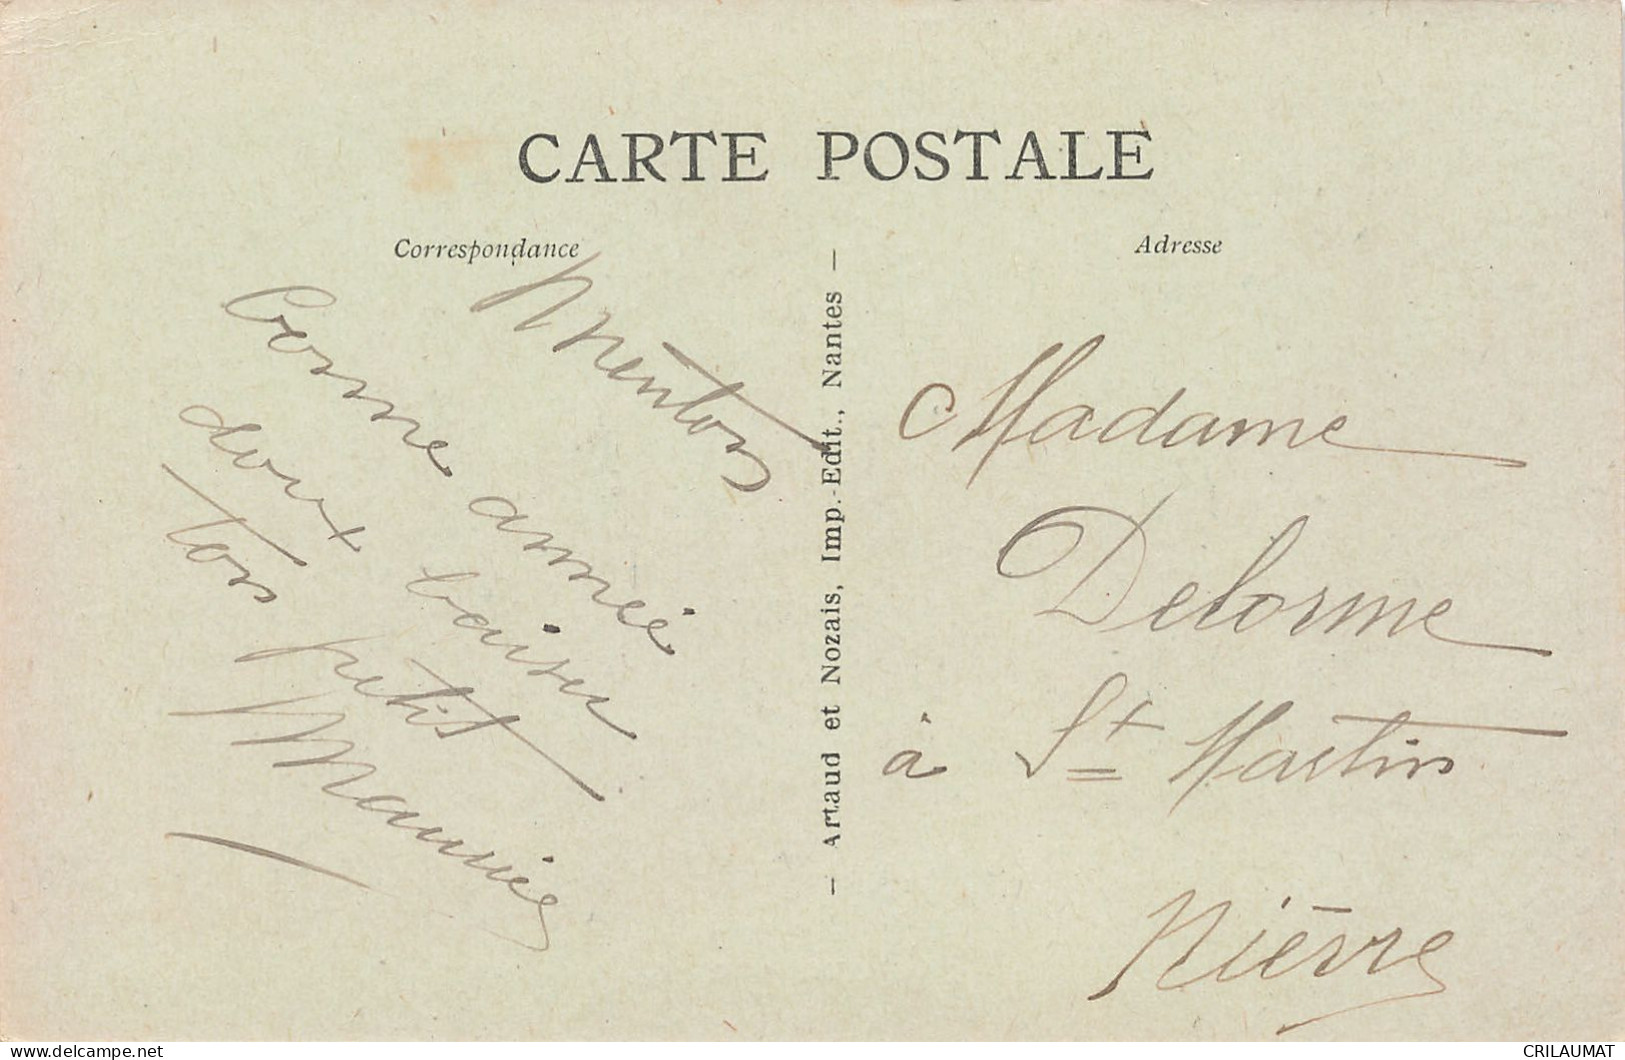 CARTE POSTALE
Correspondance
Adresse
Menton
Bonne année
doux baiser
ton petit
Maurice
— Artaud et Nozais, Imp.-Edit., Nantes —
Madame
Delorme
à St Martin
Nièvre
www.delcampe.net
CRILAUMAT